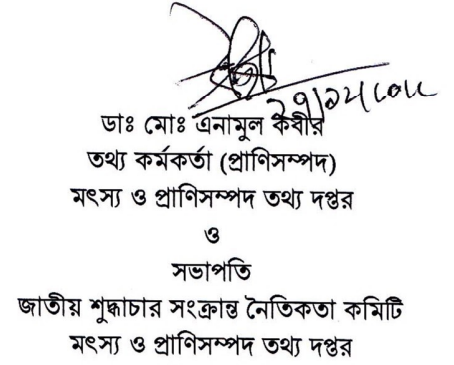 ডাঃ মোঃ এনামুল কবীর
তথ্য কর্মকর্তা (প্রাণিসম্পদ)
মৎস্য ও প্রাণিসম্পদ তথ্য দপ্তর
ও
সভাপতি
জাতীয় শুদ্ধাচার সংক্রান্ত নৈতিকতা কমিটি
মৎস্য ও প্রাণিসম্পদ তথ্য দপ্তর